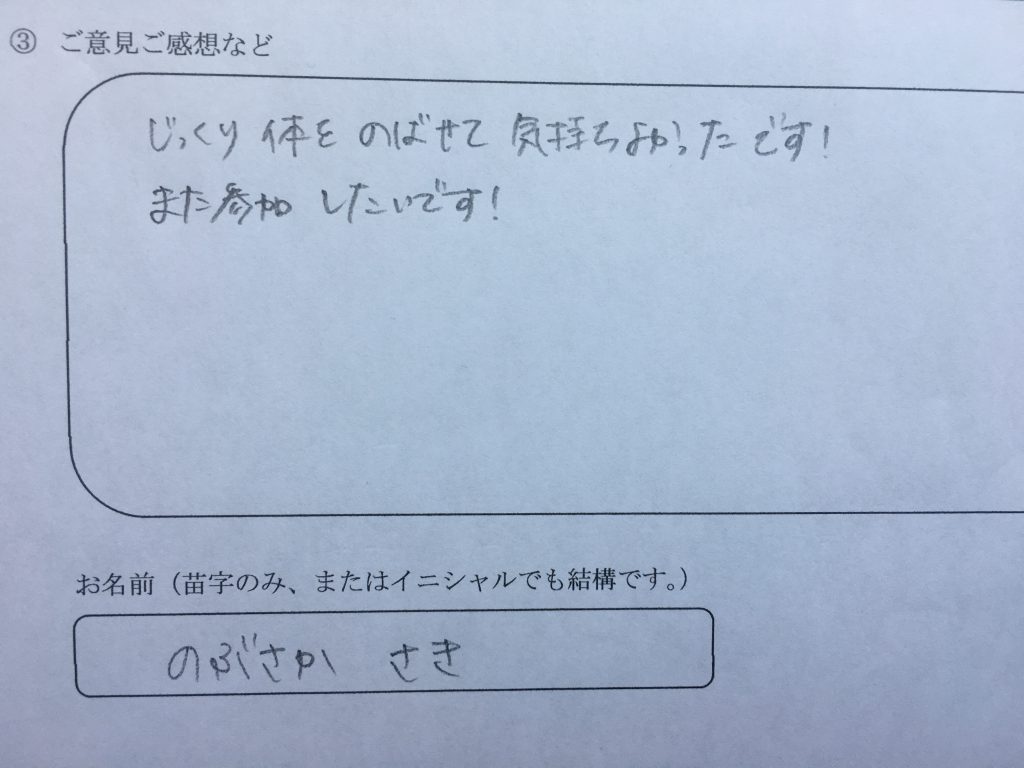 ③ ご意見ご感想など
じっくり 体を のばせて 気持ちよかったです!
また参加 したいです!
お名前（苗字のみ、またはイニシャルでも結構です。）
のぶさか さき